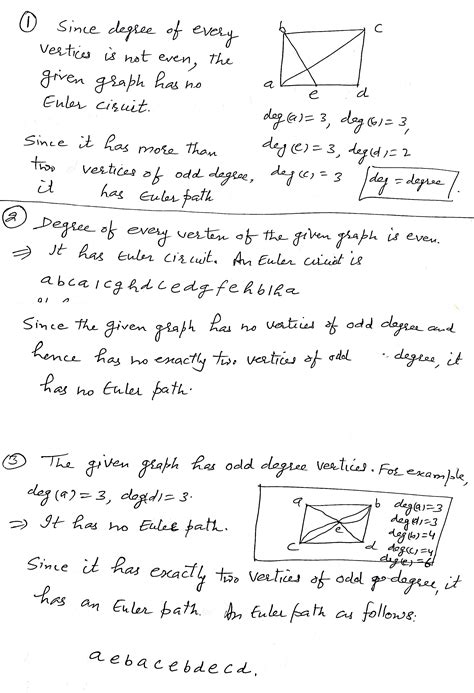 ① Since degree of every
vertices is not even, the
given graph has no
Euler circuit.
b c
a e d
deg(a)=3, deg(b)=3,
deg(e)=3, deg(d)=2
deg(c)=3
deg = degree
Since it has more than
two vertices of odd degree,
it has Euler path
② Degree of every vertex of the given graph is even.
⇒ It has Euler circuit. An Euler circuit is
a b c a i c g h d c e d g f e h b i h a
Since the given graph has no vertices of odd degree and
hence has no exactly two vertices of odd degree, it
has no Euler path.
③ The given graph has odd degree vertices. For example,
deg(a)=3, deg(d)=3.
⇒ It has no Euler path.
a b
e
c d
deg(a)=3
deg(d)=3
deg(b)=4
deg(c)=4
deg(e)=6
Since it has exactly two vertices of odd degree, it
has an Euler path. An Euler path as follows:
a e b a c e b d e c d.